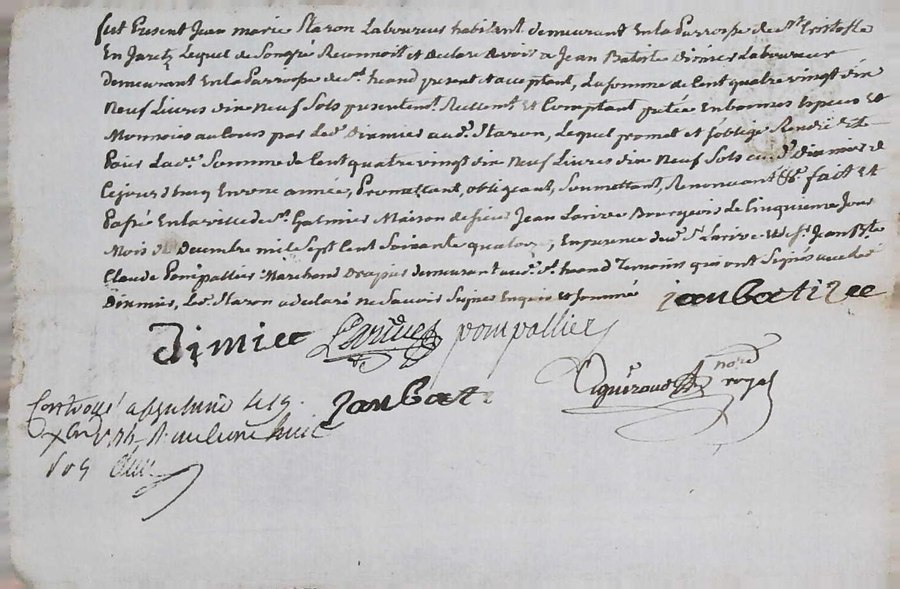 fut Present Jean marie Staron Laboureur habitant demeurant En la Parroisse de St Cristofle
En Jaretz Lequel de Son gré Reconnoit et Declare devoir a Jean Batiste Dimier Laboureur
demeurant En la Parroisse de St heand present et acceptant, La Somme de Cent quatre vingt dix
Neuf Livres dix neuf Sols presentemt Reellemt Et Comptant pretée En bonnes Especes Et
Monnoie au Cours par Led. Dimier aud. Staron, Lequel promet et s'oblige Rendre Et
Paier Lade Somme de Cent quatre vingt dix Neuf Livres dix neuf Sols aud. Dimier de
Ce jourdhuy En une année, Promettant, obligeant, Soumettant, Renonceant &c. fait Et
Passé En la ville de St Galmier Maison de sieur Jean Larive Bourgeois Le Cinquieme Jour
Mois de Decembre mil Sept Cent Soixante quatorze, En presence dud. Sr Larive Et de Sr Jean Bte
Claude Pompallier Marchand Drapier demeurant aud. St heand Temoins qui ont Signés avec led.
Dimier, Led. Staron a declaré ne Savoir Signer Enquis Et Sommé jan batizee
dimier Larive pompallier
janbati
nore
royal
Controllé a St Galmié le 19
xbre 1774 R.